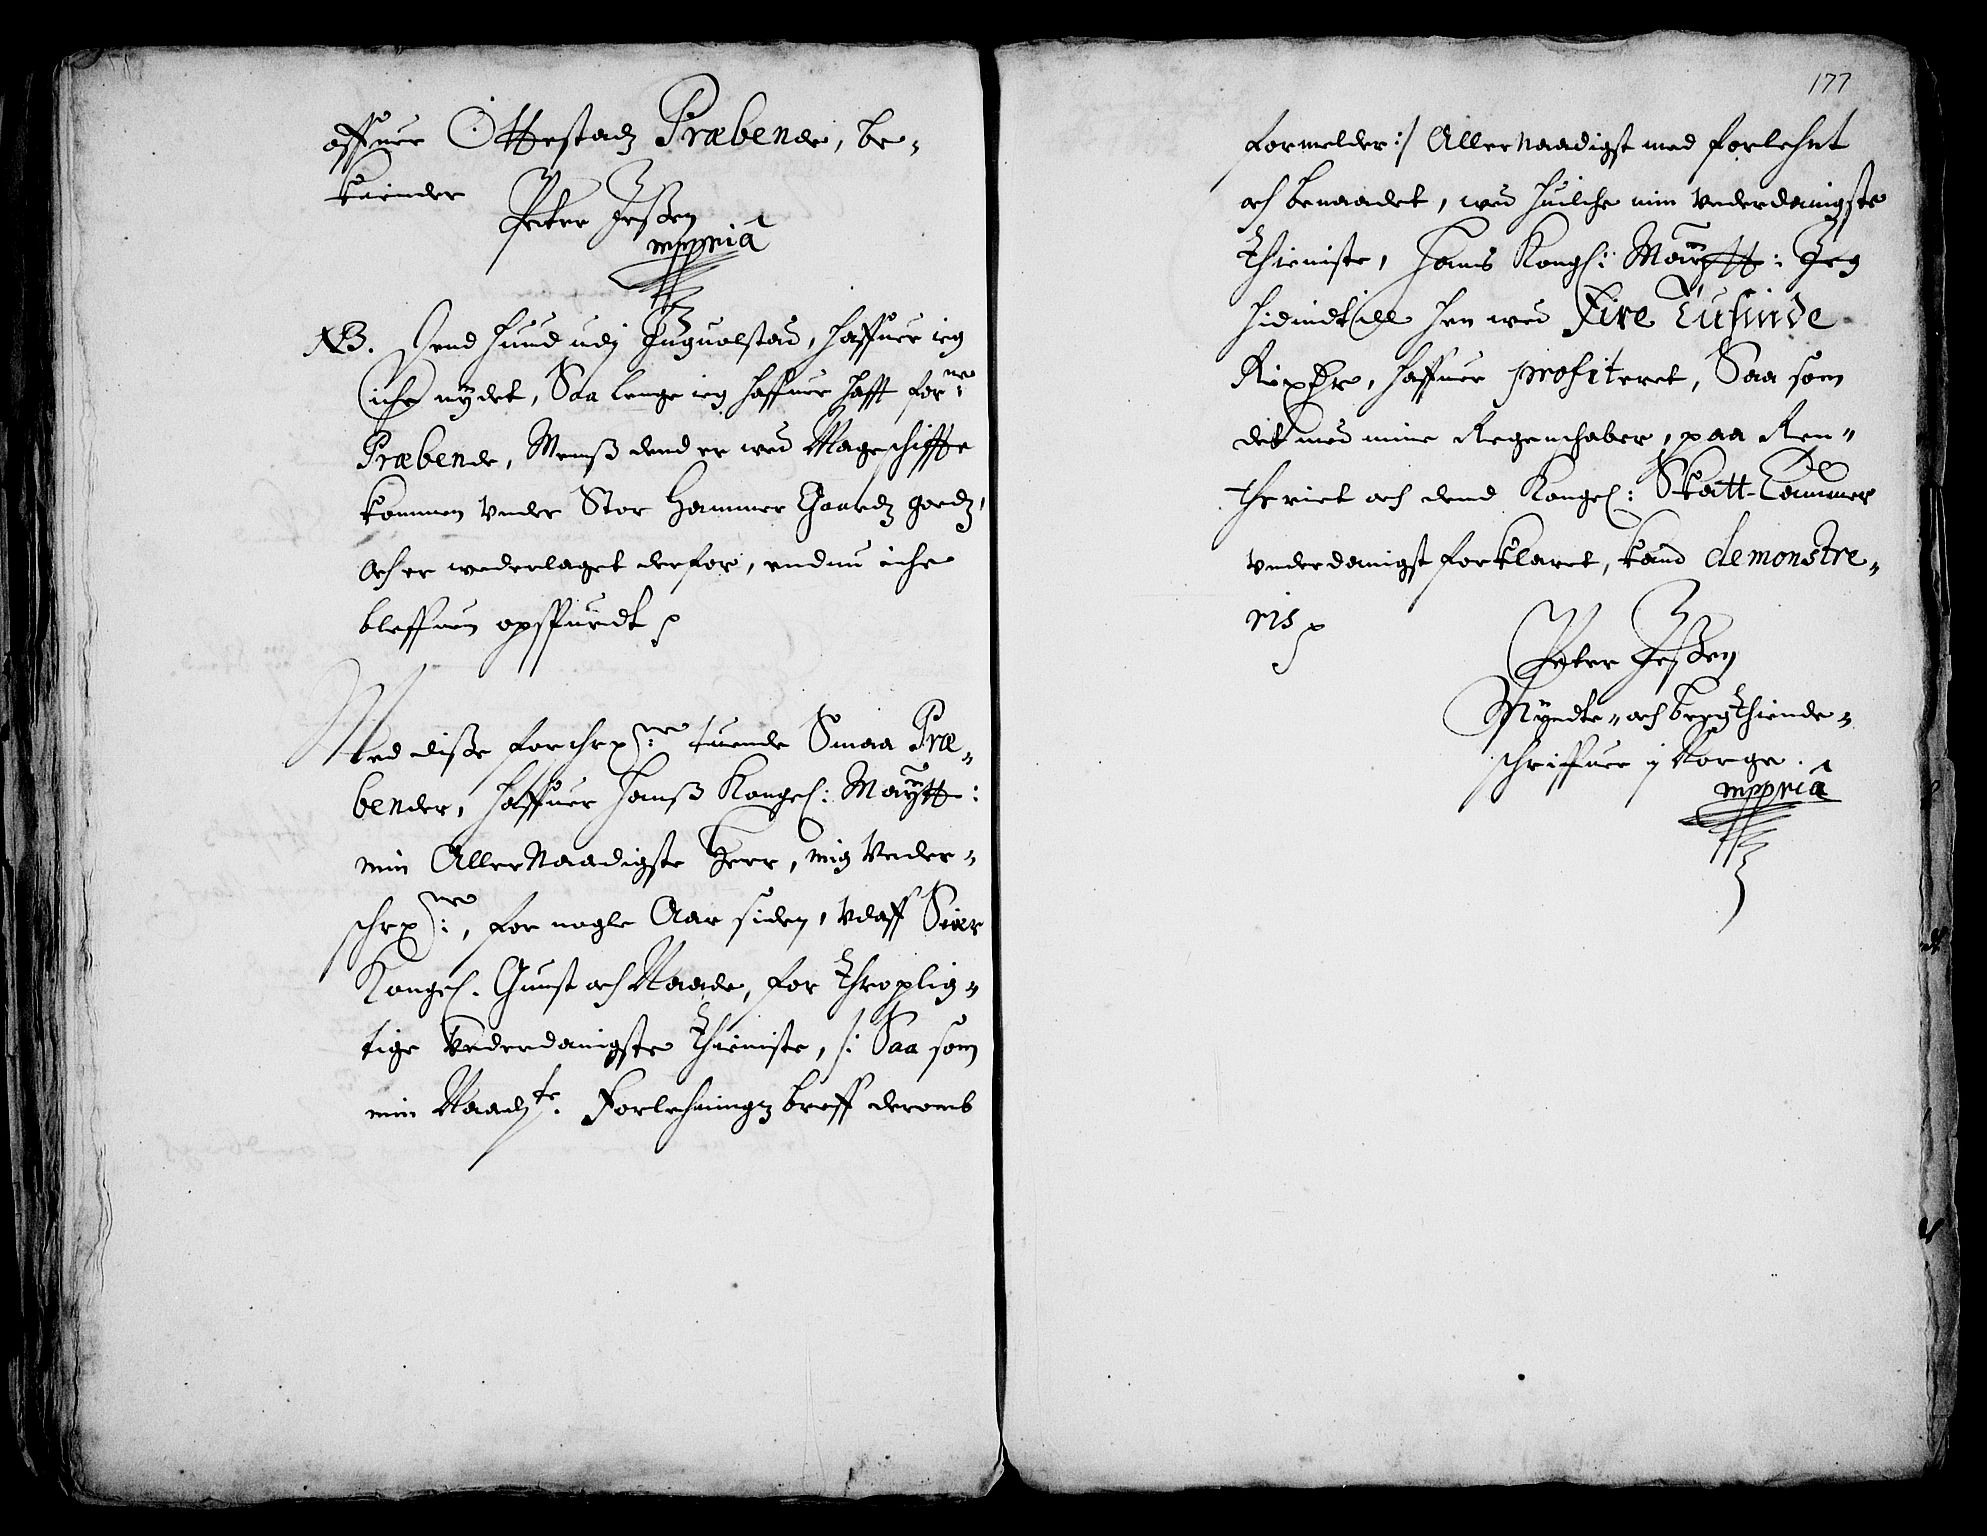 offuer Ottestadz Præbende, be-
kiender
Peter Jeßen
mppria
NB. Dend Hund udj Inguolstad, haffuer ieg
iche nydet, Saa lenge ieg haffuer hafft for:ne
Præbende, Menß dend er wed Mageschiffte
kommen Vnder Stor Hammer Gaardz godz,
och er wederlaget derfor, endnu iche
bleffuen opspurdt
Med disse forschr:ne tuende Smaa Præ-
bender, haffuer Hanß Kongel: Maÿtt:
min AllerNaadigste Herr, mig Vnder-
schr:ne, for nogle Aar siden, Vdaff Sær
Kongel. Gunst och Naade, for Throplig-
tige Vnderdanigste Thieniste, /: Saa som
min Naadgste. Forlehningz breff deromb
177
formelder:/ Allernaadigst med forlehnt
och benaadet, wed huilche min Vnderdanigste
Thieniste, Hans Kongl: Maÿtt: Jeg
hidindtill hen wed Fire Tusinde
Rixdr, haffuer profiteret, Saa som
det med mine Regenschaber, paa Ren-
theriet och dend Kongel: Skatt-Cammer
Vnderdanigst forklaret, kand demonstre-
ris
Peter Jeßen
Myndte- och bergthiende-
schriffuer j Norge.
mppria